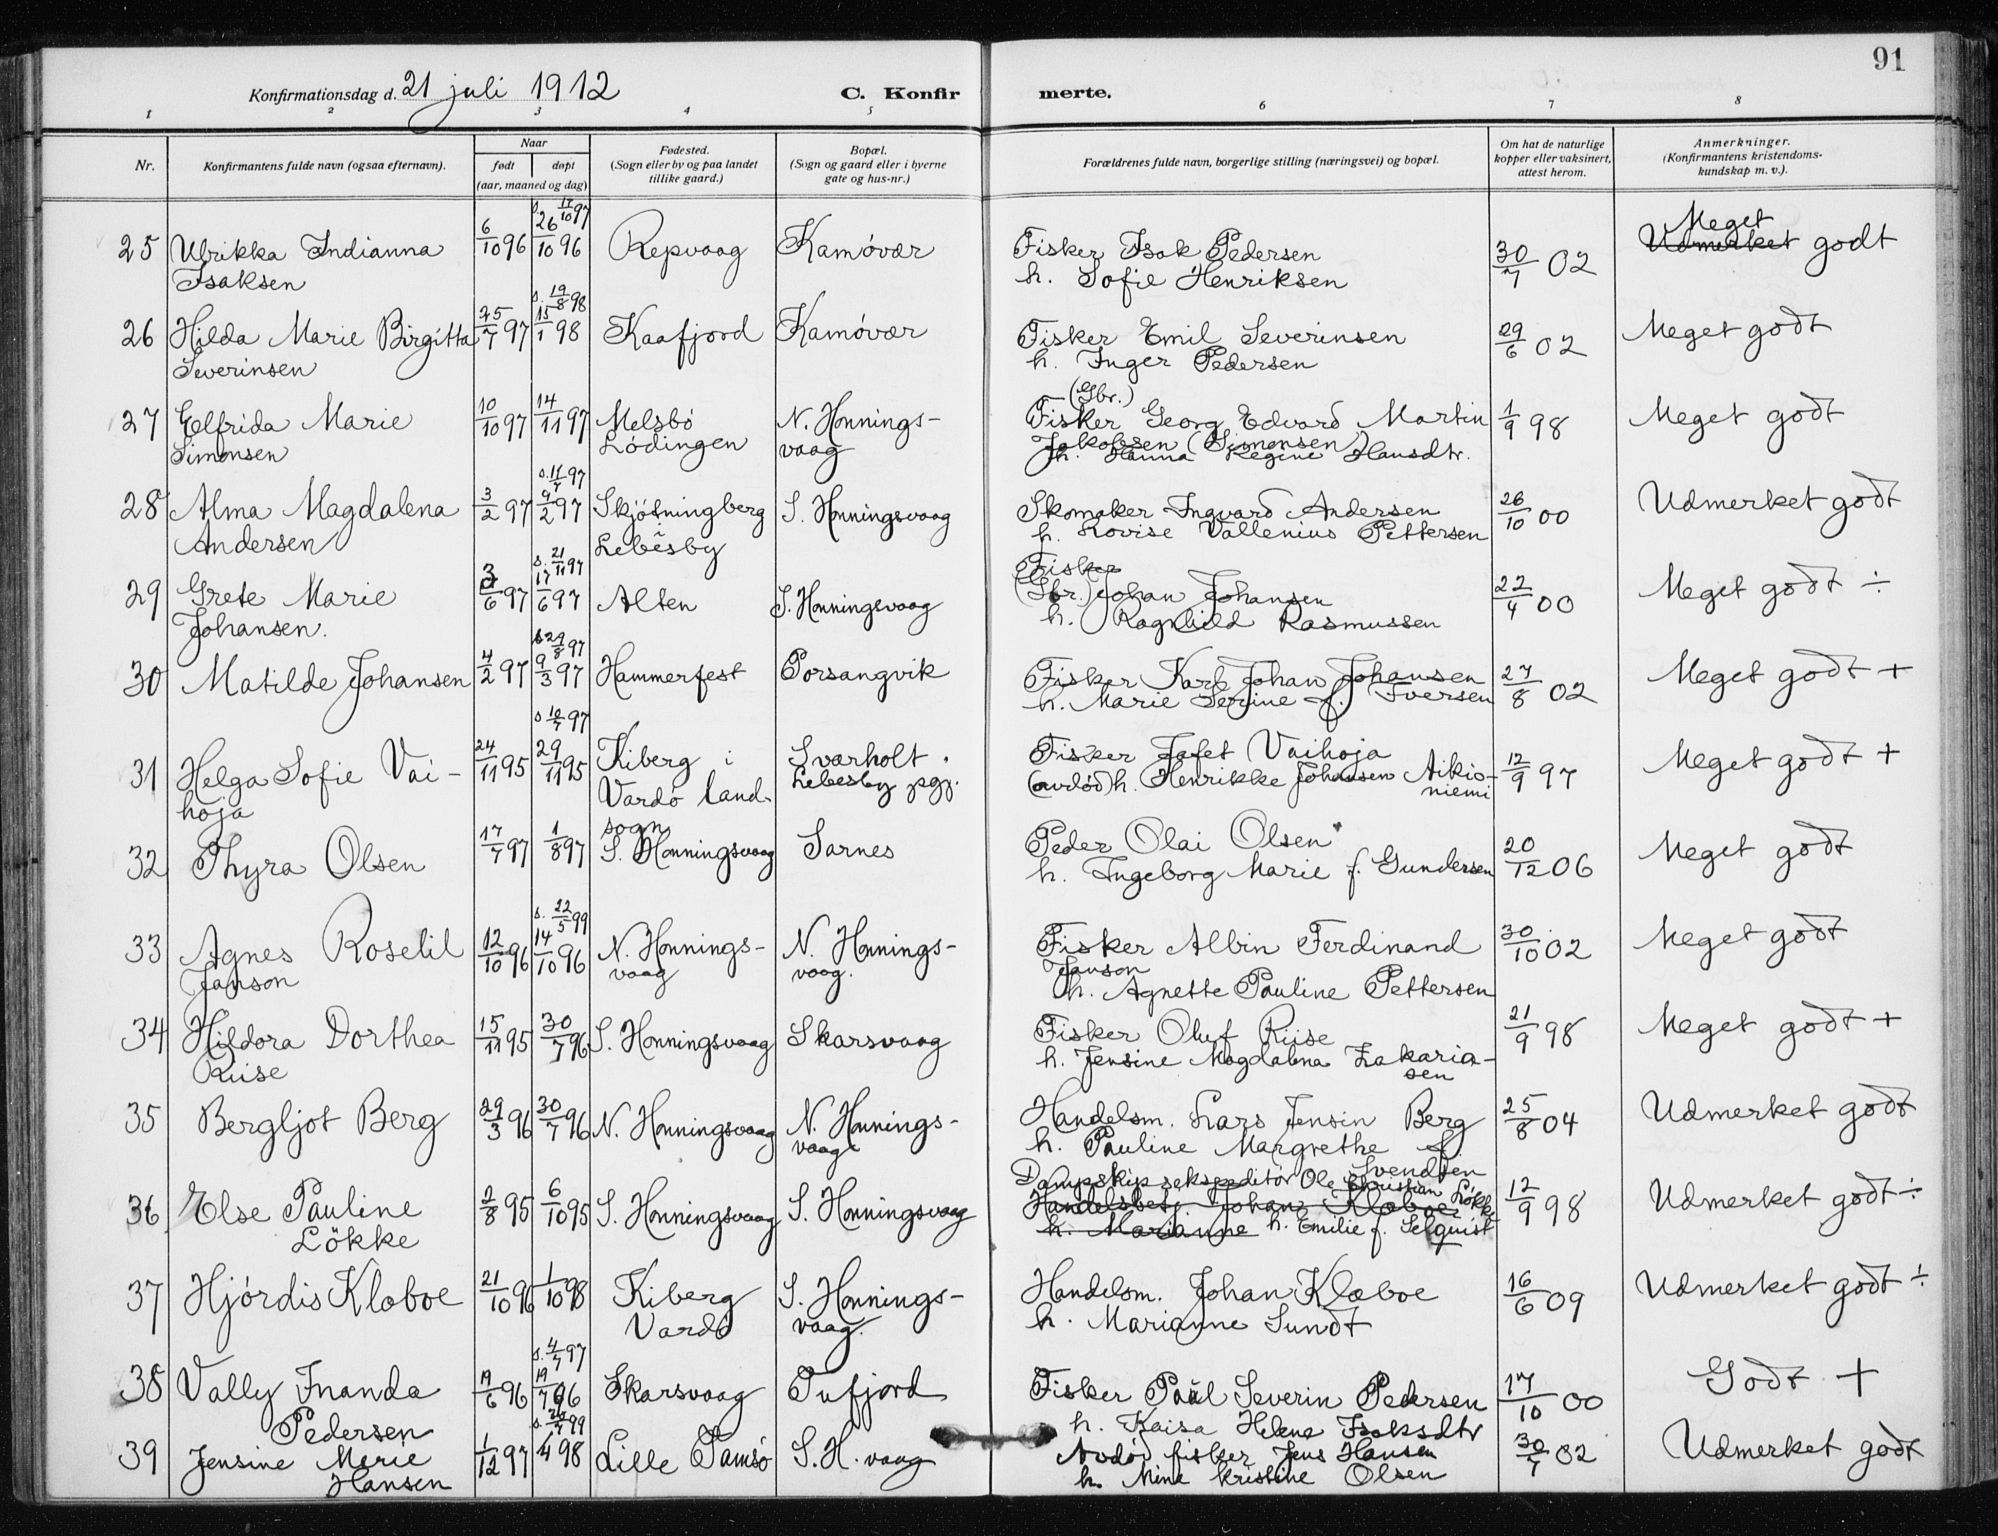 91
Konfirmationsdag d. 21 juli 1912
C. Konfirmerte.
1 2 3 4 5 6 7 8
Nr.
Konfirmantens fulde navn (ogsaa efternavn).
Naar
født
døpt
(aar, maaned og dag)
Fødested.
(Sogn eller by og paa landet
tillike gaard.)
Bopæl.
(Sogn og gaard eller i byerne
gate og hus-nr.)
Forældrenes fulde navn, borgerlige stilling (næringsvei) og bopæl.
Om hat de naturlige
kopper eller vaksinert,
attest herom.
Anmerkninger.
(Konfirmantens kristendoms-
kundskap m. v.).
25 Ulrikka Indianna
Isaksen
6/10 96
s. 17/10 97
26/10 96
Repvaag
Kamövær
Fisker Isak Pedersen
h. Sofie Henriksen
30/7 02
Meget
Udmerket godt
26 Hilda Marie Birgitta
Severinsen
25/7 97
s. 19/8 98
15/1 98
Kaafjord
Kamövær
Fisker Emil Severinsen
h. Inger Pedersen
29/6 02
Meget godt
27 Elfrida Marie
Simonsen
10/10 97
14/11 97
Melsbö
Lödingen
N. Honnings-
vaag
(Gbr.)
Fisker Georg Edvard Martin
Jakobsen (Simonsen)
h. Hanna Regine Hansdtr.
1/9 98
Meget godt
28 Alma Magdalena
Andersen
3/2 97
s. 11/7 97
9/2 97
Skjötningberg
i
Lebesby
S. Honningsvaag
Skomaker Ingvard Andersen
h. Lovise Vallenius Pettersen
26/10 00
Udmerket godt
29 Grete Marie
Johansen.
3/6 97
s. 21/11 97
17/6 97
Alten
S. Honningsvaag
Fisker
(Gbr.) Johan Johansen
h. Ragnhild Rasmussen
22/4 00
Meget godt ÷
30 Matilde Johansen
4/2 97
s 29/8 97
9/3 97
Hammerfest
Porsangvik
Fisker Karl Johan Johansen
h. Marie Serine f. Iversen
27/8 02
Meget godt +
31 Helga Sofie Vai-
hoja
24/11 95
s 12/7 97
29/11 95
Kiberg i
Vardö land-
sogn
Svarholt.
Lebesby pgj.
Fisker Jafet Vaihoja
(avdöd) h. Henrikke Johansen Aikio-
niemi
12/9 97
Meget godt +
32 Thyra Olsen
17/7 97
1/8 97
S. Honningsvaag
Sarnes
Peder Olai Olsen
h. Ingeborg Marie f. Gundersen
20/12 06
Meget godt
33 Agnes Roselil
Janson
12/10 96
s. 22/5 99
14/10 96
N. Honnings-
vaag
N. Honnings-
vaag.
Fisker Albin Ferdinand
Janson
h. Agnette Pauline Pettersen
30/10 02
Meget godt
34 Hildora Dorthea
Riise
15/11 95
30/7 96
S. Honningsvaag
Skarsvaag
Fisker Oluf Riise
h. Jensine Magdalena Zakaria-
sen
21/9 98
Meget godt +
35 Bergljot Berg
29/3 96
30/7 96
N. Honningsvaag
N. Honnings-
vaag
Handelsm. Lars Jensin Berg
h. Pauline Margrethe f.
Svendsen
25/8 04
Udmerket godt
36 Else Pauline
Lökke
2/8 95
6/10 95
S. Honningsvaag
S. Honningsvaag
Dampskipsekspeditör Ole Christian Lökke
Handelsbest. Johan Klæboe
h. Marianne h. Emilie f. Selquist
12/9 98
Udmerket godt ÷
37 Hjördis Klæboe
21/10 96
1/10 98
Kiberg
Vardö
S. Honnings-
vaag.
Handelsm. Johan Klæboe
h. Marianne Sundt
16/6 09
Udmerket godt ÷
38 Vally Inanda
Pedersen
19/6 96
s. 4/7 97
19/7 96
Skarsvaag
Tufjord
Fisker Paul Severin Pedersen
h. Kaisa Helena Isaksdtr
17/10 00
Godt +
39 Jensine Marie
Hansen
1/12 97
4 98
Lille Tamsö
S. H. vaag
Avdöd fisker Jens Hansen
h. Mina Kristine Olsen
30/7 02
Udmerket godt